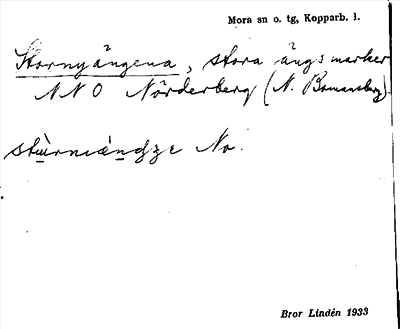 Mora sn o. tg, Kopparb. l.
Stornyängena, stora ängsmarker
NNO Nörderberg (N. Bomansberg).
No.
Bror Lindén 1933